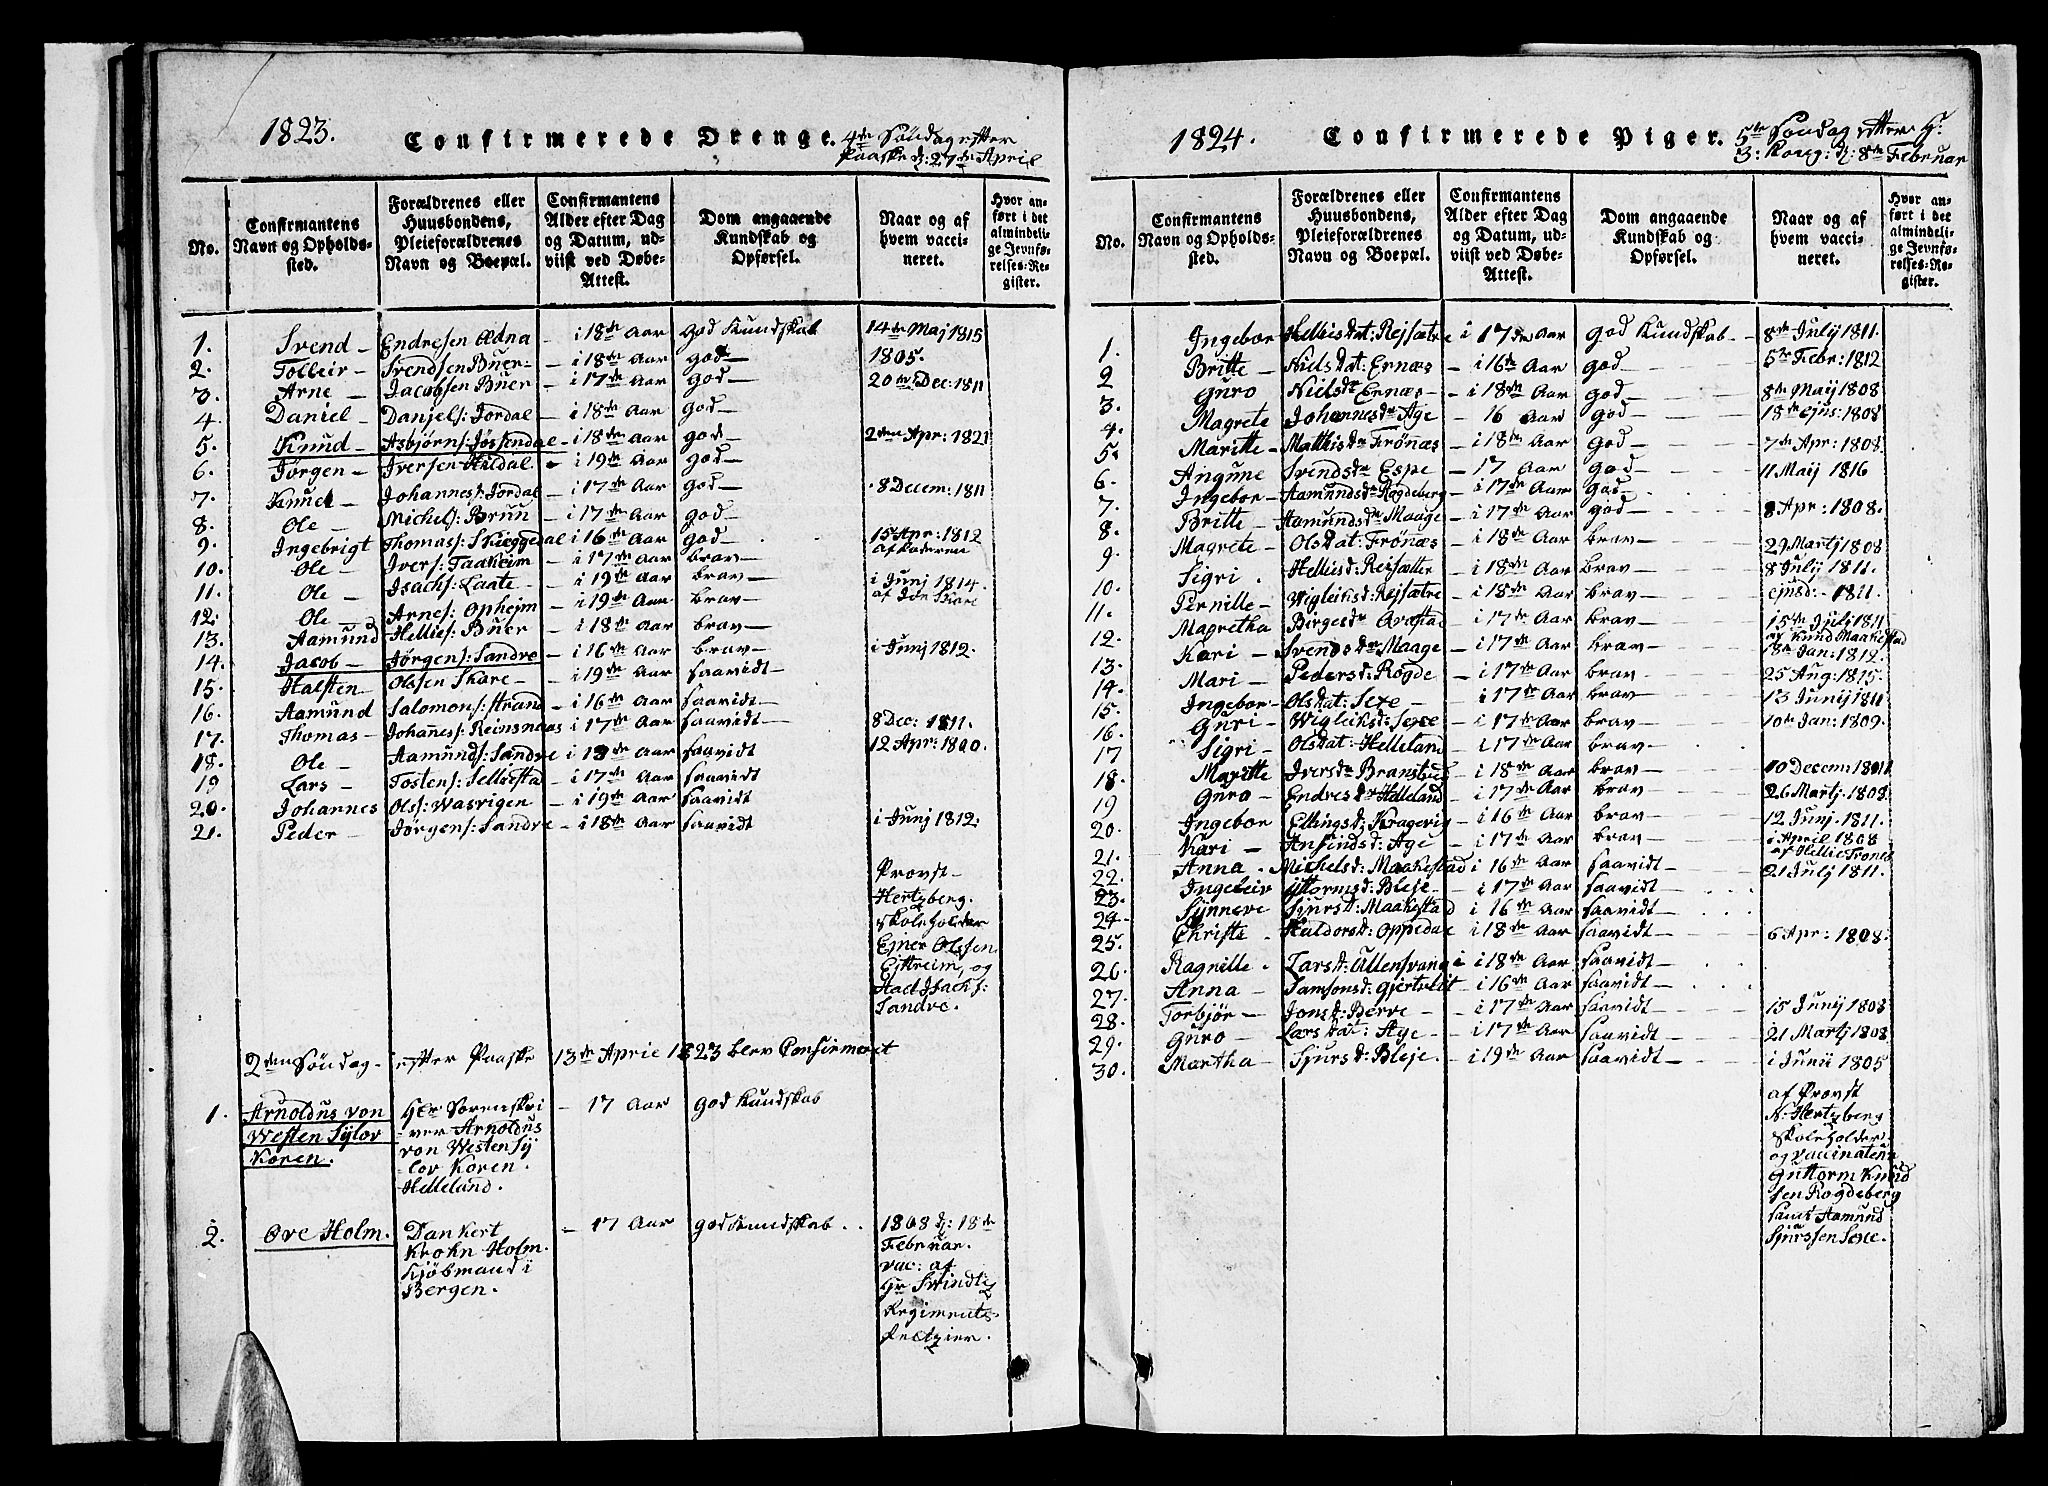 1823. Confirmerede Drenge. 4de Søndag efter
Paaske d: 27de April
No.
Confirmantens
Navn og Opholds-
sted.
Forældrenes eller
Huusbondens,
Pleieforældrenes
Navn og Boepæl.
Confirmantens
Alder efter Dag
og Datum, ud-
viist ved Døbe-
Attest.
Dom angaaende
Kundskab og
Opførsel.
Naar og af
hvem vacci-
neret.
Hvor an-
ført i det
almindeli-
ge Jevnfø-
relses-Re-
gister.
1. Svend - Endresen Ædna - i 18de Aar god Kundskab 14de Maj 1815
2. Tolleir - Svendsen Buer - i 18de Aar god - 1805.
3. Arne - Jacobsen Buer - i 17de Aar god - 20de Dec: 1811
4. Daniel - Danjels: Jordal - i 18de Aar god -
5. Knud - Asbjørns: Jøssendal - i 18de Aar god - 2den Apr: 1821
6. Jørgen - Iversen Hildal - i 19de Aar god -
7. Knud - Johannes: Jordal - i 17de Aar god - 8 Decem: 1811
8. Ole - Michels: Bruun - i 17de Aar god -
9. Ingebrigt Thomass: Skieggedal i 16de Aar god - 15de Apr: 1812
10. Ole - Ivers: Taaheim - i 17de Aar brav -
11. Ole - Isachs: Laate - i 19de Aar brav - i Junj 1814.
af Jon Skare
12. Ole - Arnes: Opheim - i 19de Aar brav -
13. Aamund Hellies: Buer - i 18de Aar brav -
14. Jacob - Jørgens: Sandve - i 16de Aar brav - i Junj 1812.
15. Halsten - Olssen Skare - i 19de Aar saavidt -
16. Aamund Salomons: Strand - i 16de Aar saavidt -
17. Thomas - Johannes: Reinsnaas i 17de Aar saavidt - 8 Dec: 1811.
18. Ole - Aamunds: Sandve i 19de Aar saavidt 12 Apr: 1800.
19 Lars - Tostens: Sellestad - i 17de Aar saavidt
20. Johannes Ols: Wasrigen - i 19de Aar saavidt
21. Peder - Jørgens: Sandve - i 18de Aar saavidt i Junj 1812.
Provst
Hertzberg.
Skoleholder
Ejner Olssen
Ejttreim, og
Isachs:
Sandve.
2den Søndag efter Paaske 13de April 1823 blev Confirmeret
1. Arnoldus von
Westen Sylov
Koren.
Hr Sorenskri
ver Arnoldus
von Westen Sy
lov Koren.
Helleland.
- 17 Aar god Kundskab
2. Ove Holm.
Dankert
Krohn Holm.
Kjøbmand i
Bergen.
- 17 Aar god Kundskab . .
1808 d: 18de
Februar.
vac: af
Hr
Regiments-
1824. Confirmerede Piger. 5te Søndag efter H:
3: Kong: d: 8de Februar
No.
Confirmantens
Navn og Opholds-
sted.
Forældrenes eller
Huusbondens,
Pleieforældrenes
Navn og Boepæl.
Confirmantens
Alder efter Dag
og Datum, ud-
viist ved Døbe-
Attest.
Dom angaaende
Kundskab og
Opførsel.
Naar og af
hvem vacci-
neret.
Hvor an-
ført i det
almindeli-
ge Jevnfø-
relses-Re-
gister.
1. Ingebor Hellisdat: Rejsætre i 17de Aar god Kundskab - 8de Julij 1811.
2 Britte - Nielsdat: Ernæs - i 16de Aar god - 5te Febr: 1812
3. Guro - Nielsdr Ernæs - i 18de Aar god - 8de Maij 1808
4. Magrete Johannesdr Age - 16 Aar god - 18de ejus: 1808
5. Maritte - Mathisdr Frønæs - i 18de Aar god - 7de Apr: 1808
6. Angune Svendsdr Espe - 17 Aar god - 11 Maij 1816
7. Ingebor - Aamundsdr Rogdeberg - i 17de Aar god
8. Britte - Aamundsdr Maage - i 17de Aar god - 8 Apr: 1808.
9. Magrete - Olsdat: Frønæs - i 18de Aar brav - 29 Martj 1808
10. Sigri . Hellisd: Rejsætre - i 18de Aar brav - 8 Julij 1811.
11. Pernille - Wigleiksd: Rejsætre - i 18de Aar brav - ejusd: - 1811.
12. Magretha Birgesdr Aræstad - i 17de Aar brav - 15de Julj 1811
af Knud Maakestad
13. Kari - Svendsdr Maage - i 17de Aar brav - 18de Jan: 1812.
14. Mari - Pedersd: Rogde - i 17de Aar brav - 25 Aug: 1815.
15. Ingebor - Olsdat: Sexe - - i 17de Aar brav - 13 Junij 1811
16. Guri - Wigleiksd: Sexe - i 17de Aar brav - 10de Jan: 1809.
17 Sigri - Olsdat: Helleland - i 17de Aar brav -
18. Maritte Iversdr - i 18de Aar brav - 10 Decem: 1811
19 Guro - Endresdr Helleland - i 17de Aar brav - 26 Martj. 1808
20. Ingebor Ellingsd: Kragevig - i 16de Aar brav - 12 Junj. 1811.
21. Kari - Ansfindsd: Age - i 17de Aar brav - i April 1808
af Hellie Trones
22. Anna - Michelsd: Maakestad i 16de Aar saavidt - 21 Julj 1811.
23. Ingeleiv Guttormsd: Bleje - i 17de Aar saavidt -
24. Synneve Sjursd: Maakestad i 16de Aar saavidt -
25. Christi . Haldorsd: Oppedal i 18de Aar saavidt - 6 Apr: 1808.
26. Ragnille . Larsd: Ullensvang i 18de Aar saavidt -
27. Anna - Samsonsd: Gjertveit - i 16de Aar saavidt
28. Torbjør - Jonsd: Berve - - i 17de Aar saavidt 15 Junij 1808
29. Guro - Larsdat: Age - - i 17de Aar saavidt - 21 Martj 1808
30. Martha - Sjursd: Bleje. - i 19de Aar saavidt - i Junii 1805
af Provst
N. Hertzberg
Skoleholder
og vaccinateur
Guttorm Knud
sen Rogdeberg
samt Aamund
Sjurssen Sexe.